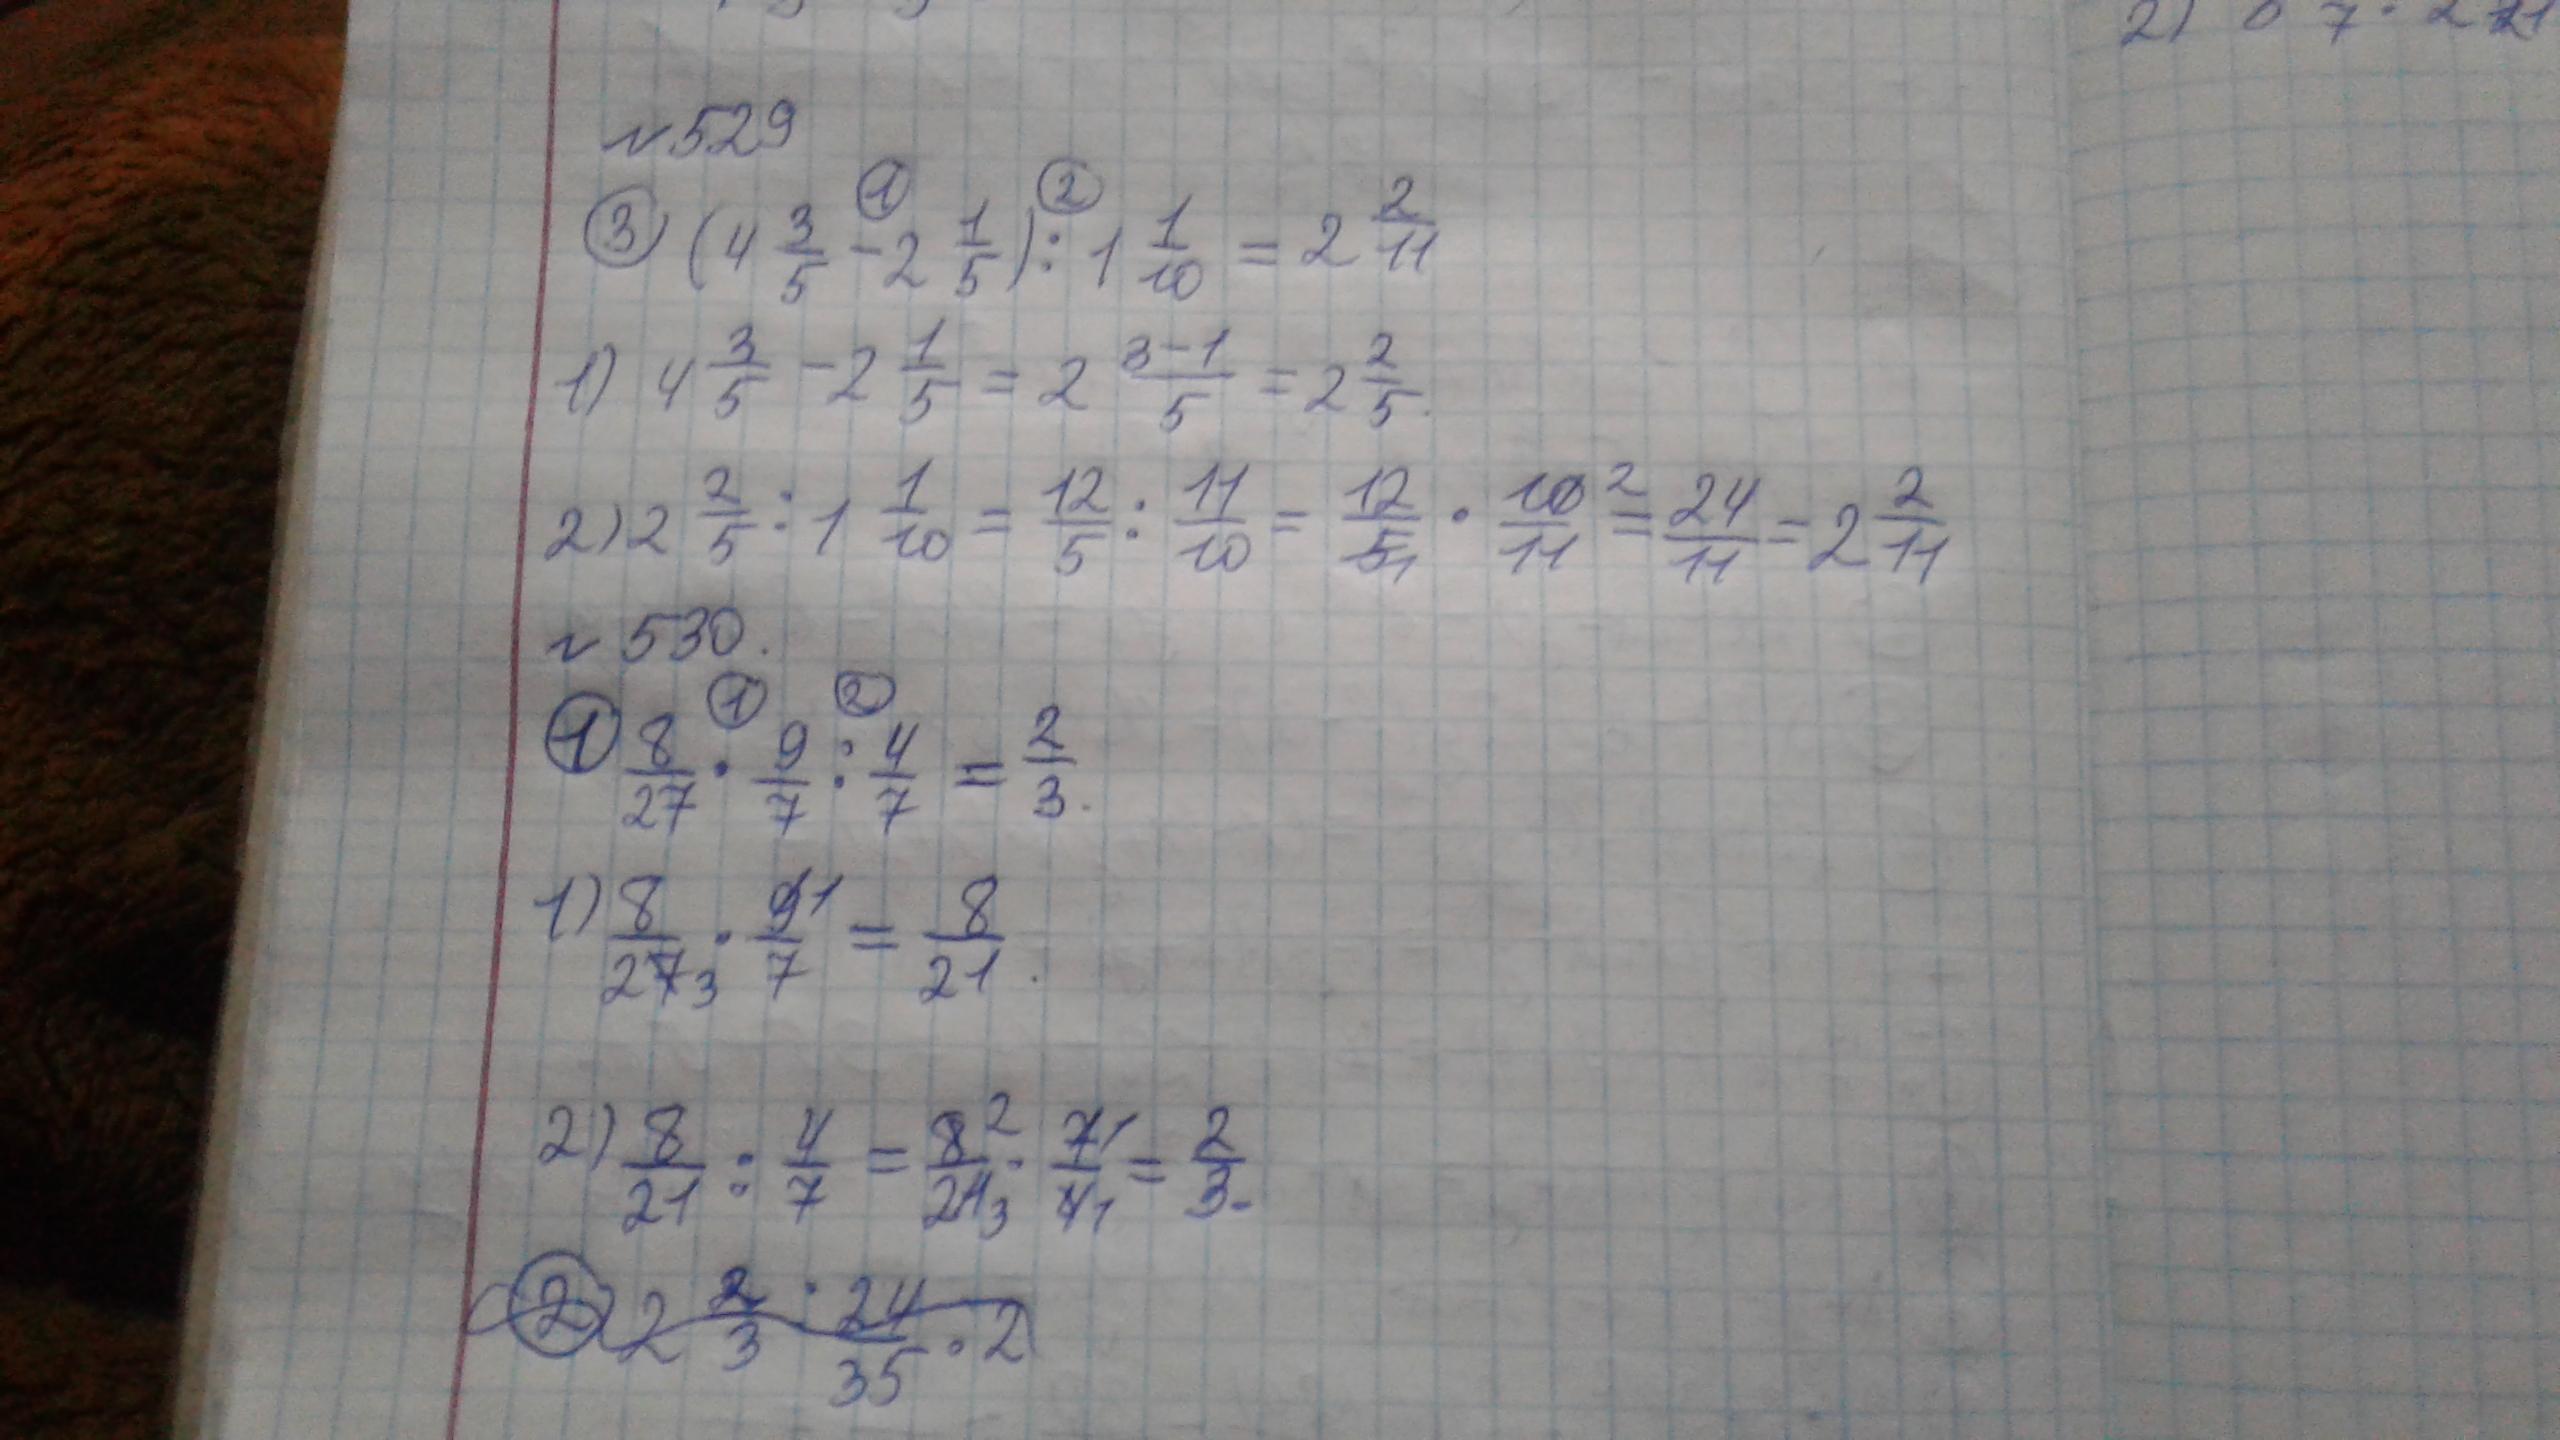 №529
③ (4 3/5 - 2 1/5) : 1 1/10 = 2 2/11
① ②
1) 4 3/5 - 2 1/5 = 2 3-1/5 = 2 2/5.
2) 2 2/5 : 1 1/10 = 12/5 : 11/10 = 12/5 1 · 10/11 2 = 24/11 = 2 2/11
№530.
① 8/27 · 9/7 : 4/7 = 2/3.
① ②
1) 8/27 3 · 9/7 1 = 8/21.
2) 8/21 : 4/7 = 8/21 2 3 · 7/4 1 1 = 2/3.
② 2 2/3 : 24/35 · 2